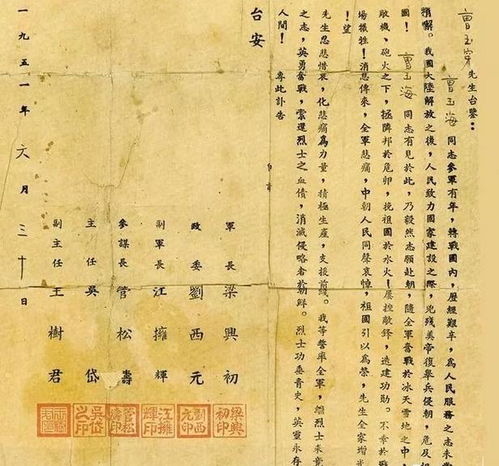 曹玉 先生台鑒:
曹玉海 同志參軍有年,轉戰國內,歷經艱辛,爲人民服務之志未嘗
稍懈。我國大陸解放之後,人民致力國家建設之際,兇殘美帝復舉兵侵朝,危及
國! 曹玉海 同志有見於此,乃毅然志願赴朝,隨全軍奮戰於冰天雪地之中
敵機、砲火之下,拯隣邦於危卵,挽祖國於水火!屢挫敵鋒,迭建功勛。不幸於戰
場犧牲!消息傳來,全軍悲痛,中朝人民同聲哀悼,祖國引以爲榮,先生全家增光
!望
先生忍悲惜哀,化悲痛爲力量,積極生產,支援前綫。我等誓率全軍,繼烈士未竟
之志,英勇奮戰,索還烈士之血債,消滅侵略者於朝鮮。烈士功垂青史,英靈永存
人間! 專此訃告
台安
軍長 梁興初
政委 劉西元
副軍長 江擁輝
參謀長 管松濤
主任 吳岱
副主任 王樹君
梁興初印
劉西元印
江擁輝印
管松濤印
吳岱之印
一九五一年六月三十日